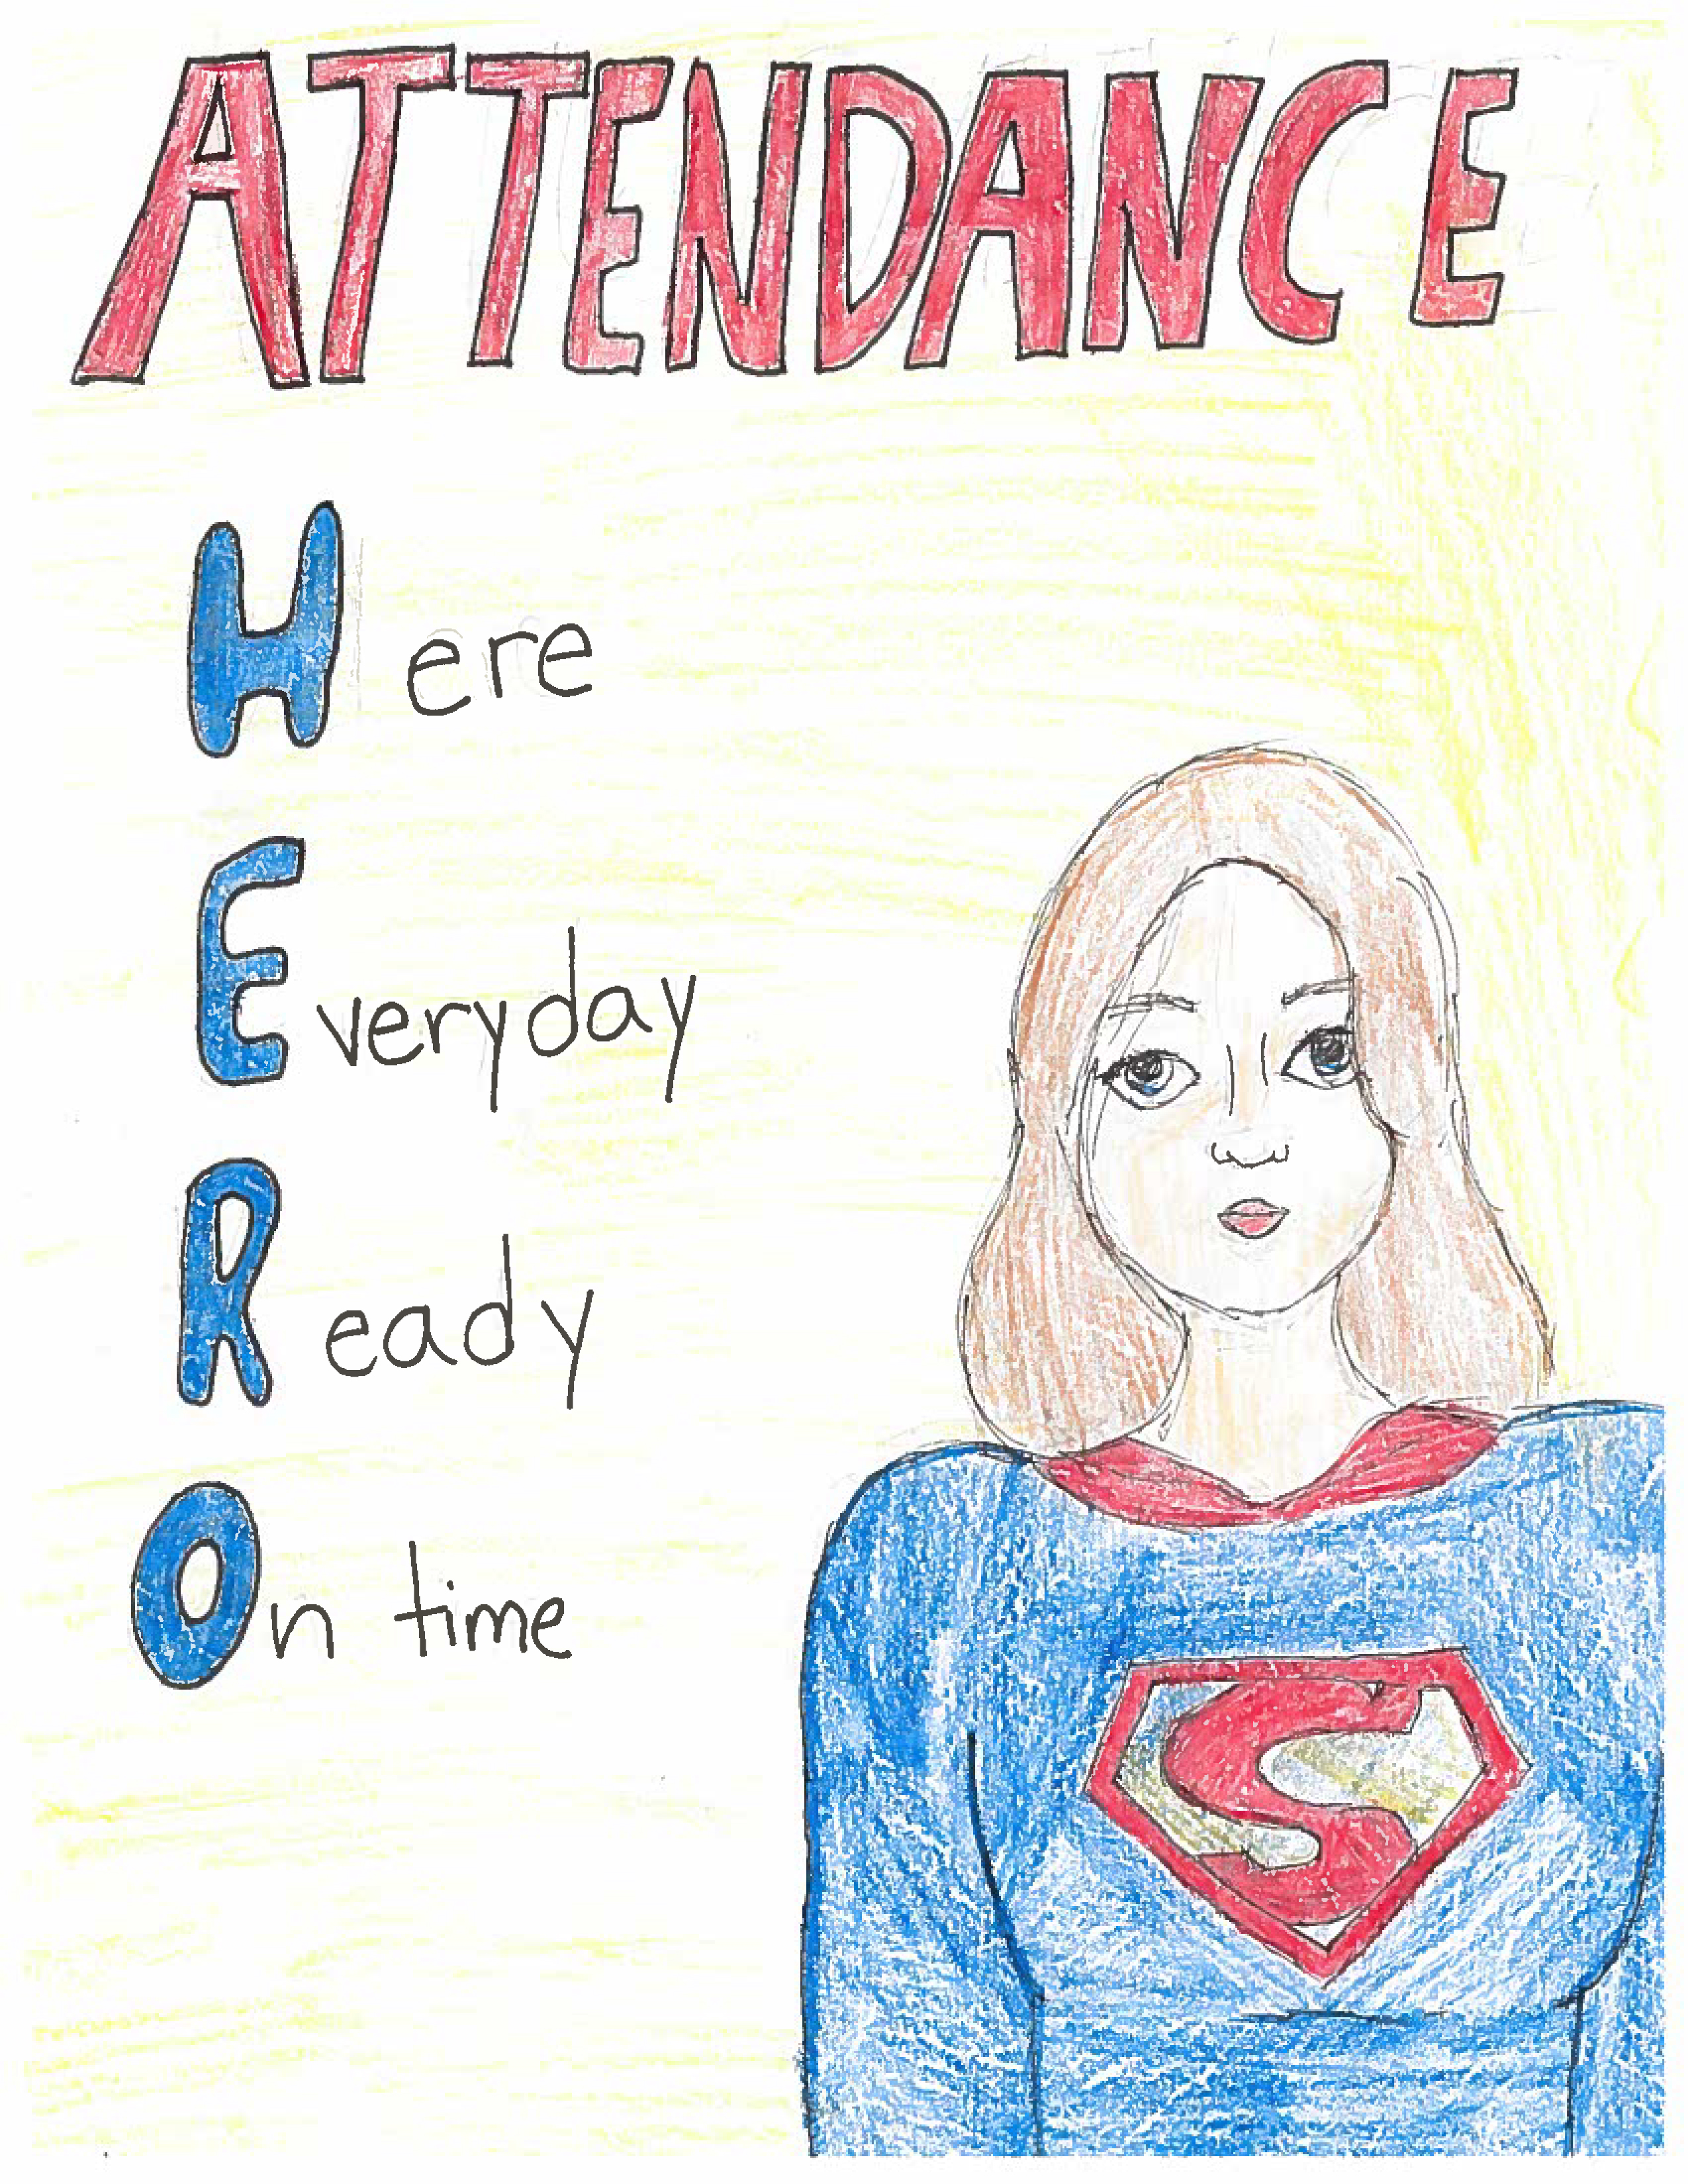 ATTENDANCE
Here
Everyday
Ready
On time
S